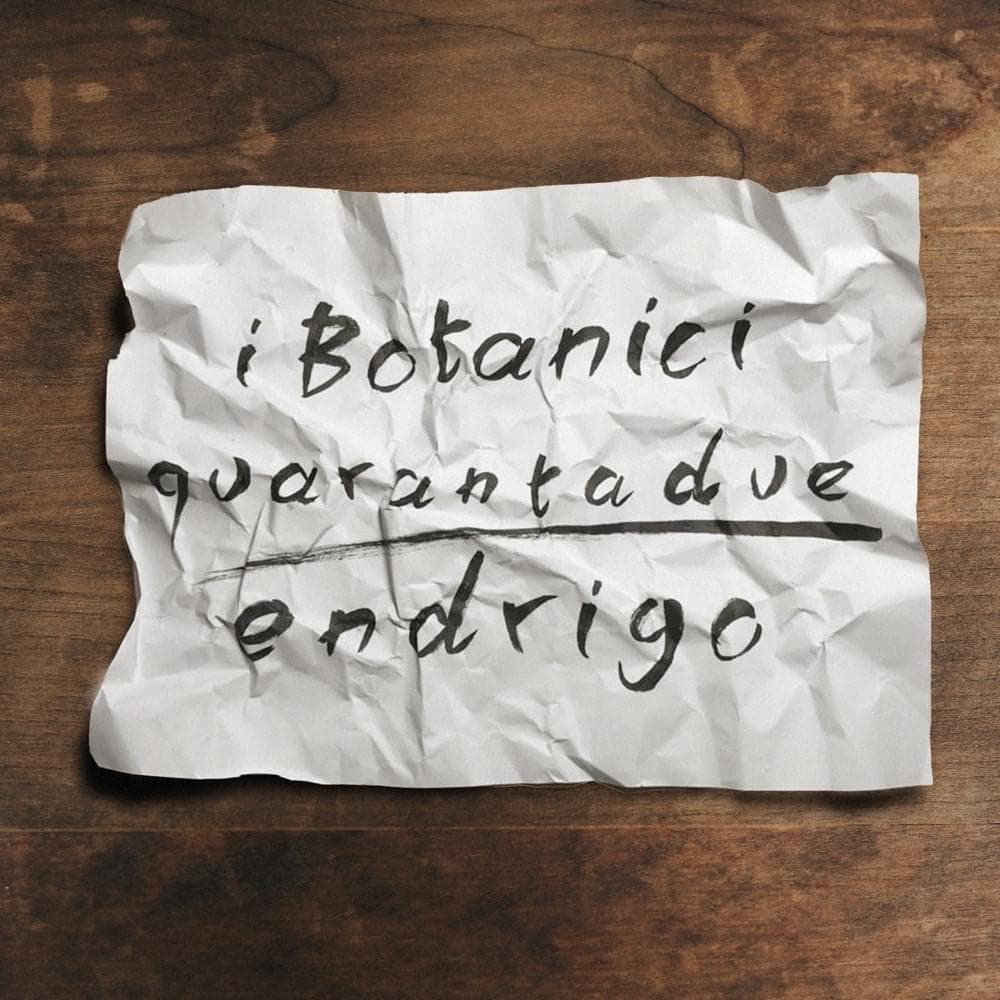 i Botanici
quarantadue
endrigo